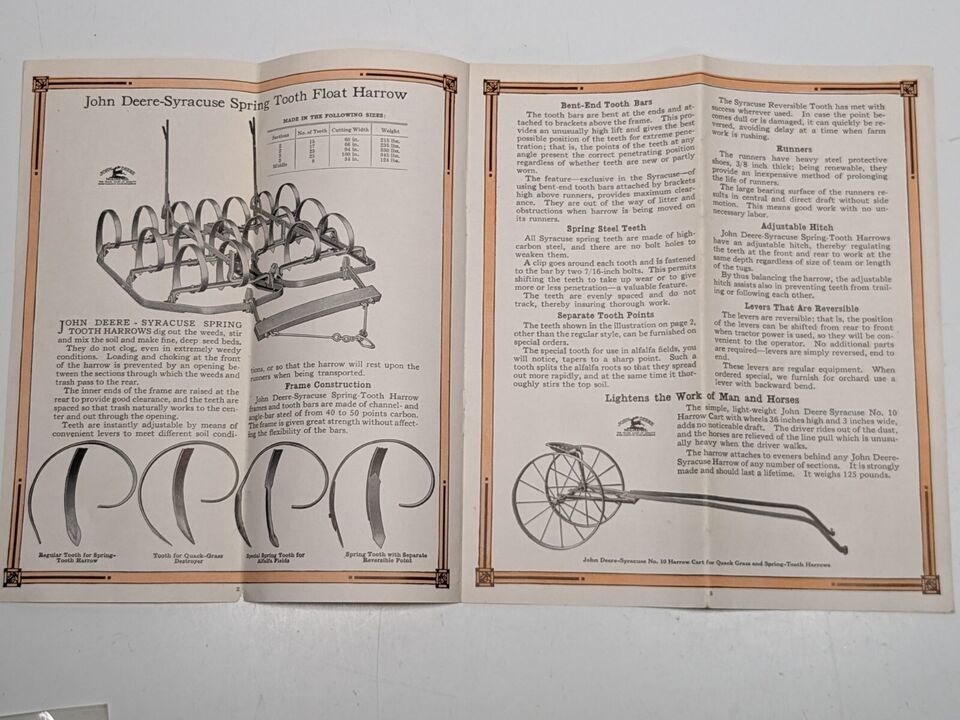 John Deere-Syracuse Spring Tooth Float Harrow
MADE IN THE FOLLOWING SIZES:
Sections No. of Teeth Cutting Width Weight
Middle
JOHN DEERE - SYRACUSE SPRING
TOOTH HARROWS dig out the weeds, stir
and mix the soil and make fine, deep seed beds.
They do not clog, even in extremely weedy
conditions. Loading and choking at the front
of the harrow is prevented by an opening be-
tween the sections through which the weeds and
trash pass to the rear.
The inner ends of the frame are raised at the
rear to provide good clearance, and the teeth are
spaced so that trash naturally works to the cen-
ter and out through the opening.
Teeth are instantly adjustable by means of
convenient levers to meet different soil condi-
tions, or so that the harrow will rest upon the
runners when being transported.
Frame Construction
John Deere-Syracuse Spring-Tooth Harrow
frames and tooth bars are made of channel- and
angle-bar steel of from 40 to 50 points carbon.
The frame is given great strength without affect-
ing the flexibility of the bars.
Regular Tooth for Spring-
Tooth Harrow
Tooth for Quack-Grass
Destroyer
Special Spring Tooth for
Alfalfa Fields
Spring Tooth with Separate
Reversible Point
2
Bent-End Tooth Bars
The tooth bars are bent at the ends and at-
tached to brackets above the frame. This pro-
vides an unusually high lift and gives the best
possible position of the teeth for extreme pene-
tration; that is, the points of the teeth at any
angle present the correct penetrating position
regardless of whether teeth are new or partly
worn.
The feature—exclusive in the Syracuse—of
using bent-end tooth bars attached by brackets
high above runners, provides maximum clear-
ance. They are out of the way of litter and
obstructions when harrow is being moved on
its runners.
Spring Steel Teeth
All Syracuse spring teeth are made of high-
carbon steel, and there are no bolt holes to
weaken them.
A clip goes around each tooth and is fastened
to the bar by two 7/16-inch bolts. This permits
shifting the teeth to take up wear or to give
more or less penetration—a valuable feature.
The teeth are evenly spaced and do not
track, thereby insuring thorough work.
Separate Tooth Points
The teeth shown in the illustration on page 2,
other than the regular style, can be furnished on
special orders.
The special tooth for use in alfalfa fields, you
will notice, tapers to a sharp point. Such a
tooth splits the alfalfa roots so that they spread
out more rapidly, and at the same time it thor-
oughly stirs the top soil.
The Syracuse Reversible Tooth has met with
success wherever used. In case the point be-
comes dull or is damaged, it can quickly be re-
versed, avoiding delay at a time when farm
work is rushing.
Runners
The runners have heavy steel protective
shoes, 3/8 inch thick; being renewable, they
provide an inexpensive method of prolonging
the life of runners.
The large bearing surface of the runners re-
sults in central and direct draft without side
motion. This means good work with no un-
necessary labor.
Adjustable Hitch
John Deere-Syracuse Spring-Tooth Harrows
have an adjustable hitch, thereby regulating
the teeth at the front and rear to work at the
same depth regardless of size of team or length
of the tugs.
By thus balancing the harrow, the adjustable
hitch assists also in preventing teeth from trail-
ing or following each other.
Levers That Are Reversible
The levers are reversible; that is, the position
of the levers can be shifted from rear to front
when tractor power is used, so they will be con-
venient to the operator. No additional parts
are required—levers are simply reversed, end to
end.
These levers are regular equipment. When
ordered special, we furnish for orchard use a
lever with backward bend.
Lightens the Work of Man and Horses
The simple, light-weight John Deere Syracuse No. 10
Harrow Cart with wheels 36 inches high and 3 inches wide,
adds no noticeable draft. The driver rides out of the dust,
and the horses are relieved of the line pull which is unusu-
ally heavy when the driver walks.
The harrow attaches to eveners behind any John Deere-
Syracuse Harrow of any number of sections. It is strongly
made and should last a lifetime. It weighs 125 pounds.
John Deere-Syracuse No. 10 Harrow Cart for Quack Grass and Spring-Tooth Harrows
3